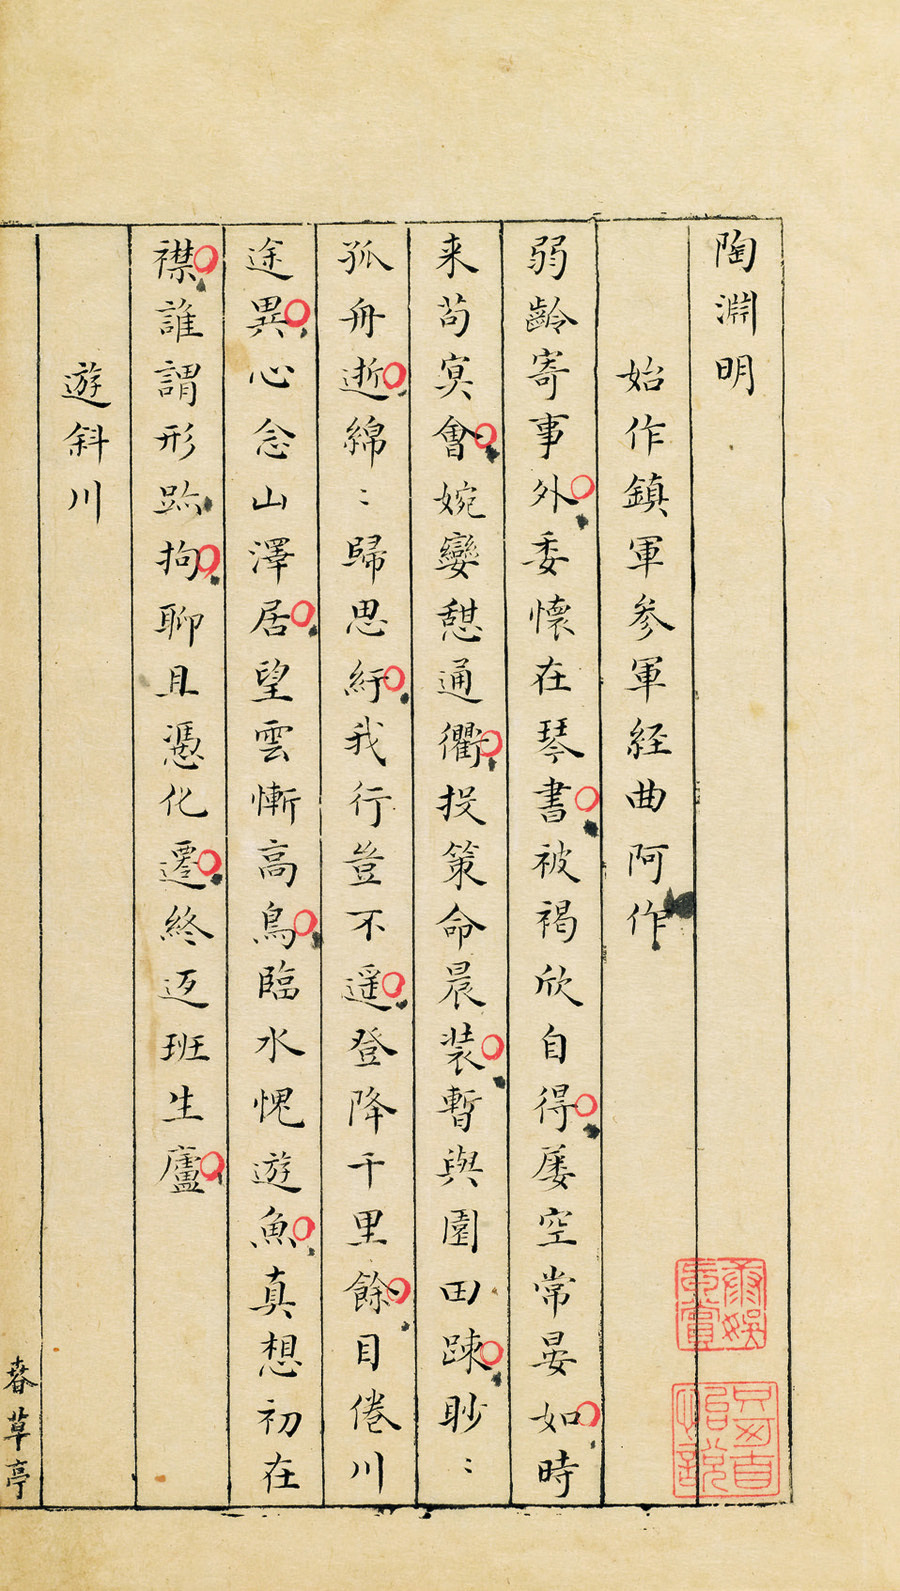 陶淵明
始作鎮軍参軍経曲阿作
弱齡寄事外委懷在琴書被褐欣自得屡空常晏如時
来苟㝠會婉孌憇通衢投策命晨装暫與園田踈眇〻
孤舟逝綿〻歸思紆我行豈不遥登降千里餘目倦川
途異心念山澤居望雲慚高鳥臨水愧遊魚真想初在
襟誰謂形跡拘聊且憑化遷終返班生廬
遊斜川
春草亭
只可自
怡說